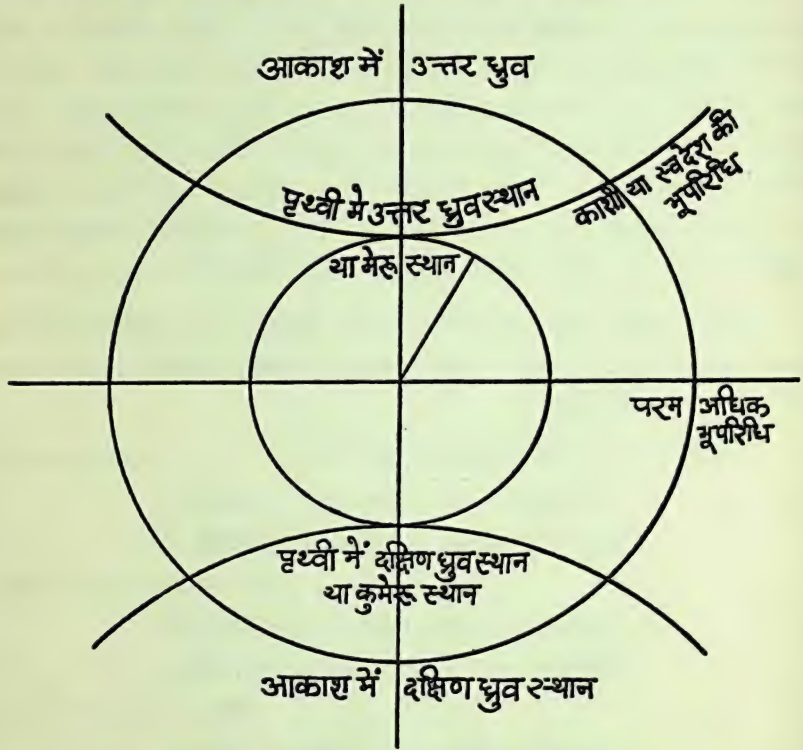 आकाश में उत्तर ध्रुव
पृथ्वी मे उत्तर ध्रुव स्थान
या मेरू स्थान
काशी या स्वदेश की
भूपरिधि
परम अधिक
भूपरिधि
पृथ्वी में दक्षिण ध्रुव स्थान
या कुमेरू स्थान
आकाश में दक्षिण ध्रुव स्थान